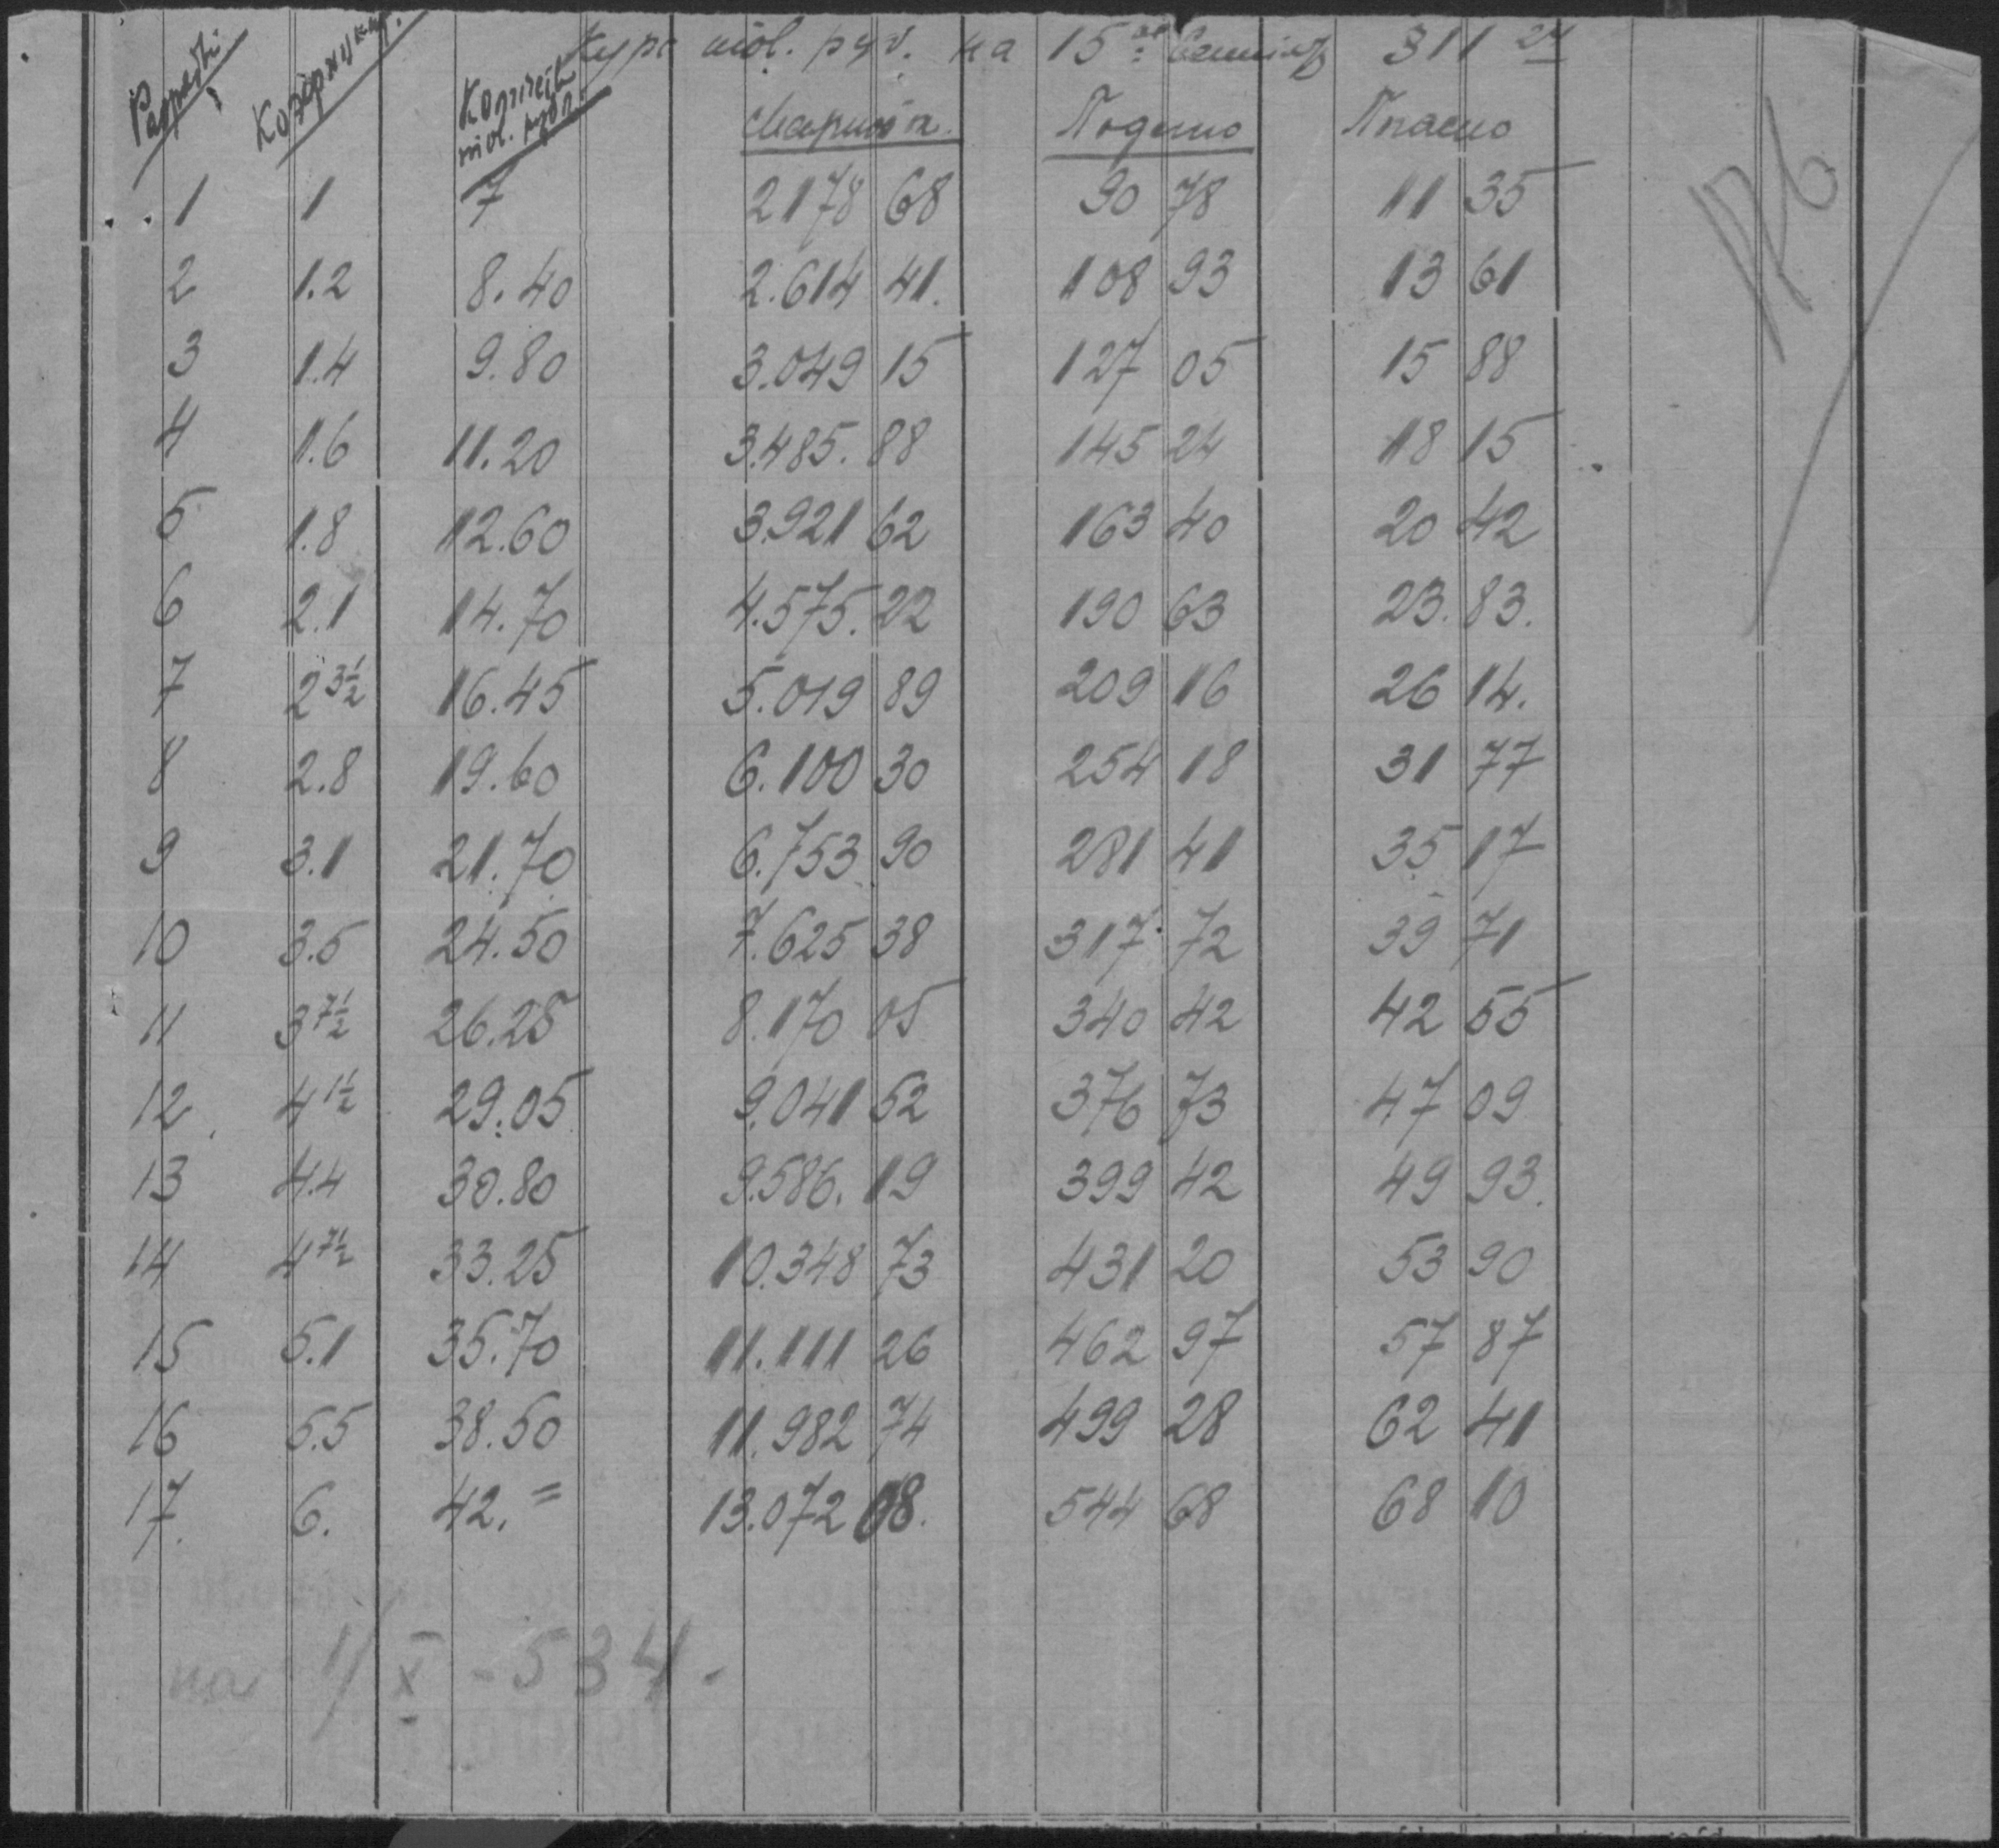 Курс тов. руб. на 15ое Сентября 311 24
Разряды Коэфициен. Количест. тов. рубл. Подено Пчасно
1 1 7 2178 68 90 78 11 35
2 1.2 8.40 2.614 41. 108 93 13 61
3 1.4 9.80 3.049 15 127 05 15 88
4 1.6 11.20 3.485. 88 145 24 18 15
5 1.8 12.60 3.921 62 163 40 20 42
6 2.1 14.70 4.575. 22 190 63 23. 83.
7 2 3½ 16.45 5.019 89 209 16 26 14.
8 2.8 19.60 6.100 30 254 18 31 77
9 3.1 21.70 6.753 90 281 41 35 17
10 3.5 24.50 7.625 38 317. 72 39 71
11 3 7½ 26.25 8.170 05 340 42 42 55
12 4 1½ 29.05 9.041 52 376 73 47 09
13 4.4 30.80 9.586. 19 399 42 49 93.
14 4 7½ 33.25 10.348 73 431 20 53 90
15 5.1 35.70 11.111 26 462 97 57 87
16 5.5 38.50 11.982 74 499 28 62 41
17. 6. 42.= 13.072 08. 544 68 68 10
на 1/X - 534.